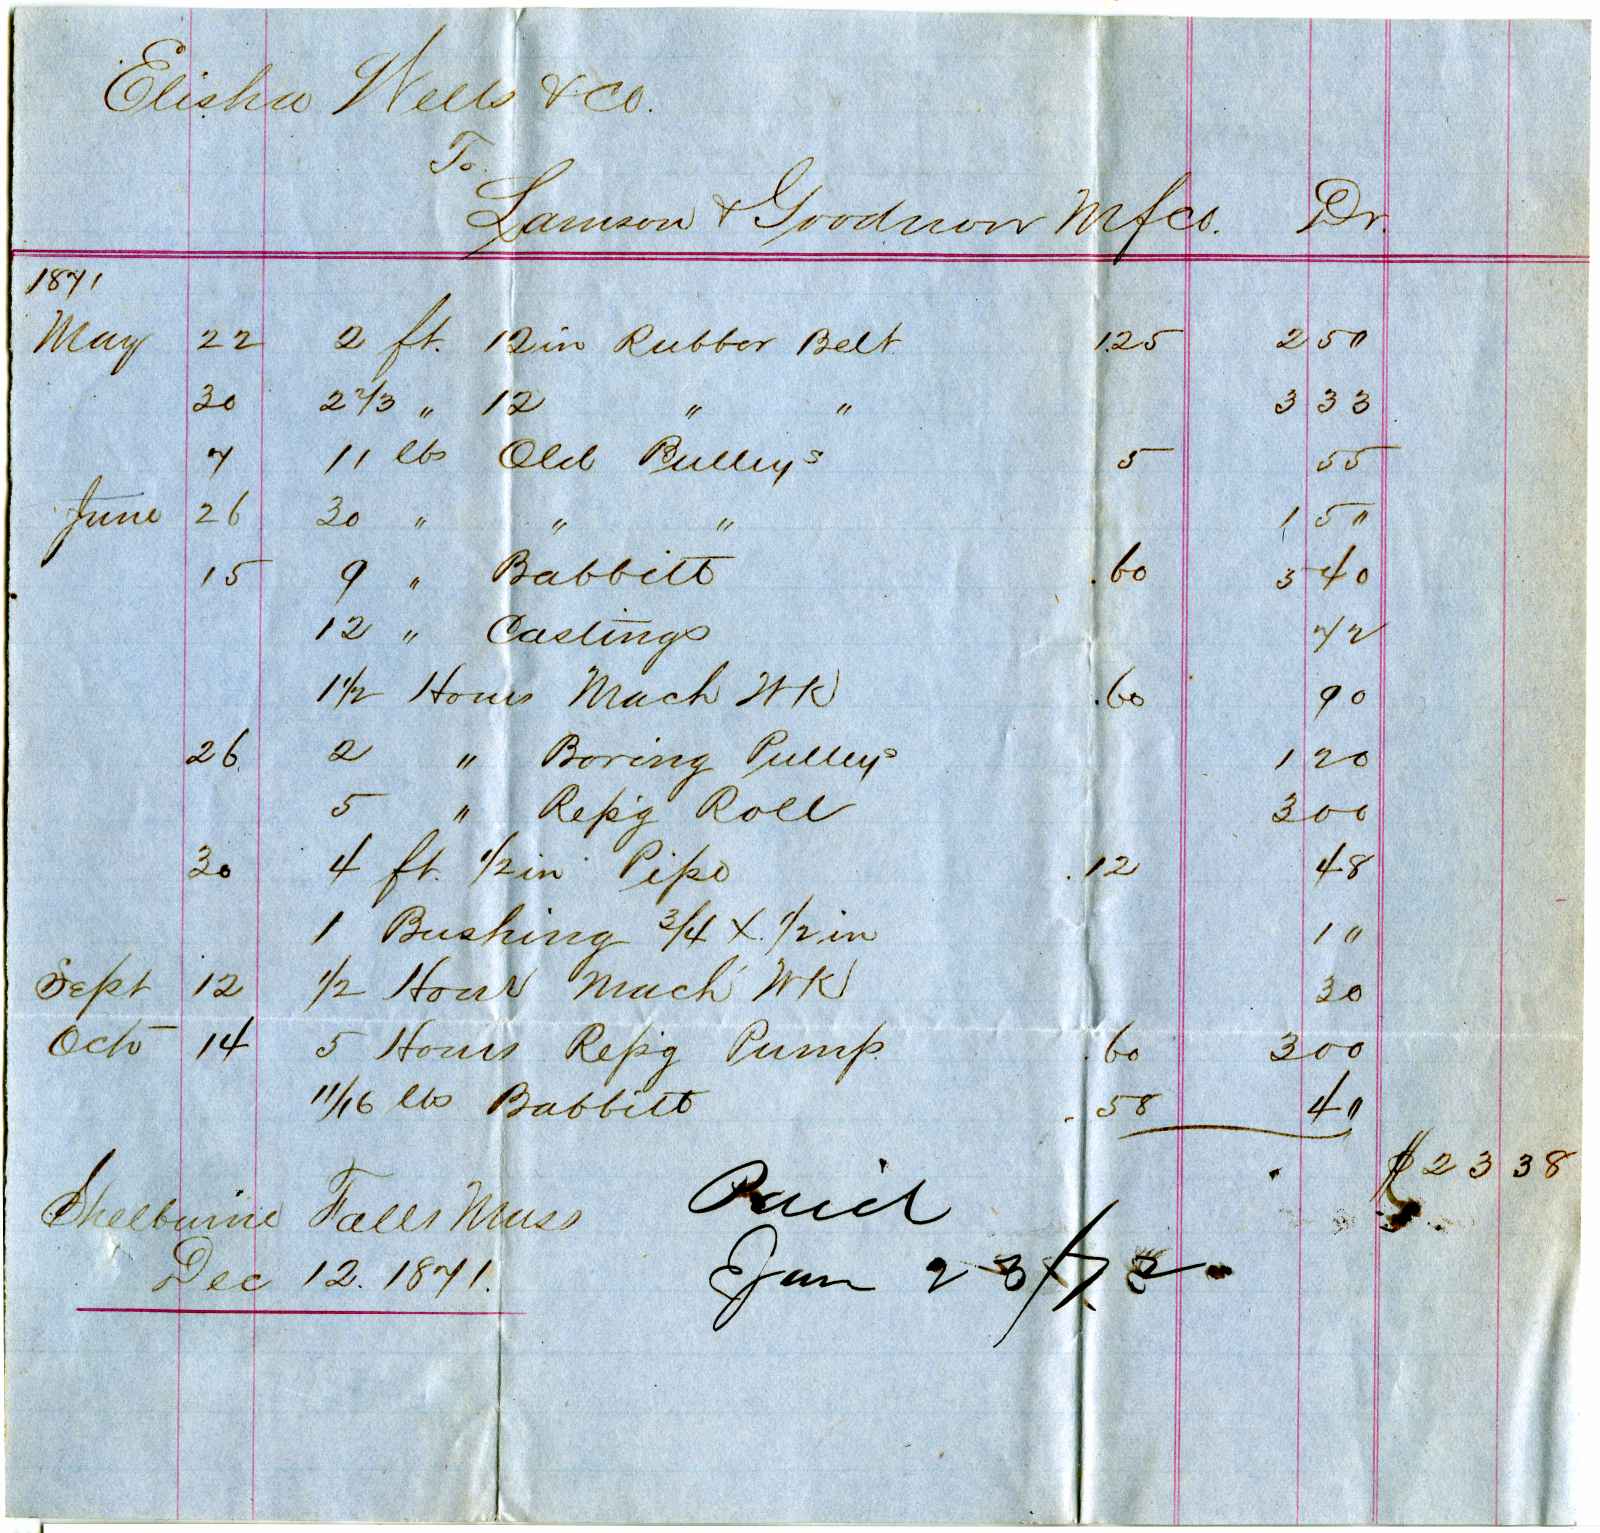 Elisha Wells & Co.
To
Lamson & Goodnow Mfco. Dr.
1871
May 22 2 ft. 12 in Rubber Belt 1.25 2 50
30 2 2/3 " 12 " " 3 33
7 11 lbs Old Pulleys 5 55
June 26 30 " " " 1 50
15 9 " Babbitt .60 5 40
12 " Castings 72
1 1/2 Hours Mach Wk .60 90
26 2 " Boring Pulleys 1 20
5 " Rep'g Roll 3 00
30 4 ft. 1/2 in Pipe .12 48
1 Bushing 3/4 X 1/2 in 10
Sept 12 1/2 Hour Mach Wk 30
Oct 14 5 Hours Rep'g Pump .60 3 00
11/16 lbs Babbitt .58 40
$23 38
Shelburne Falls Mass
Dec 12. 1871.
Paid
Jan 23/72